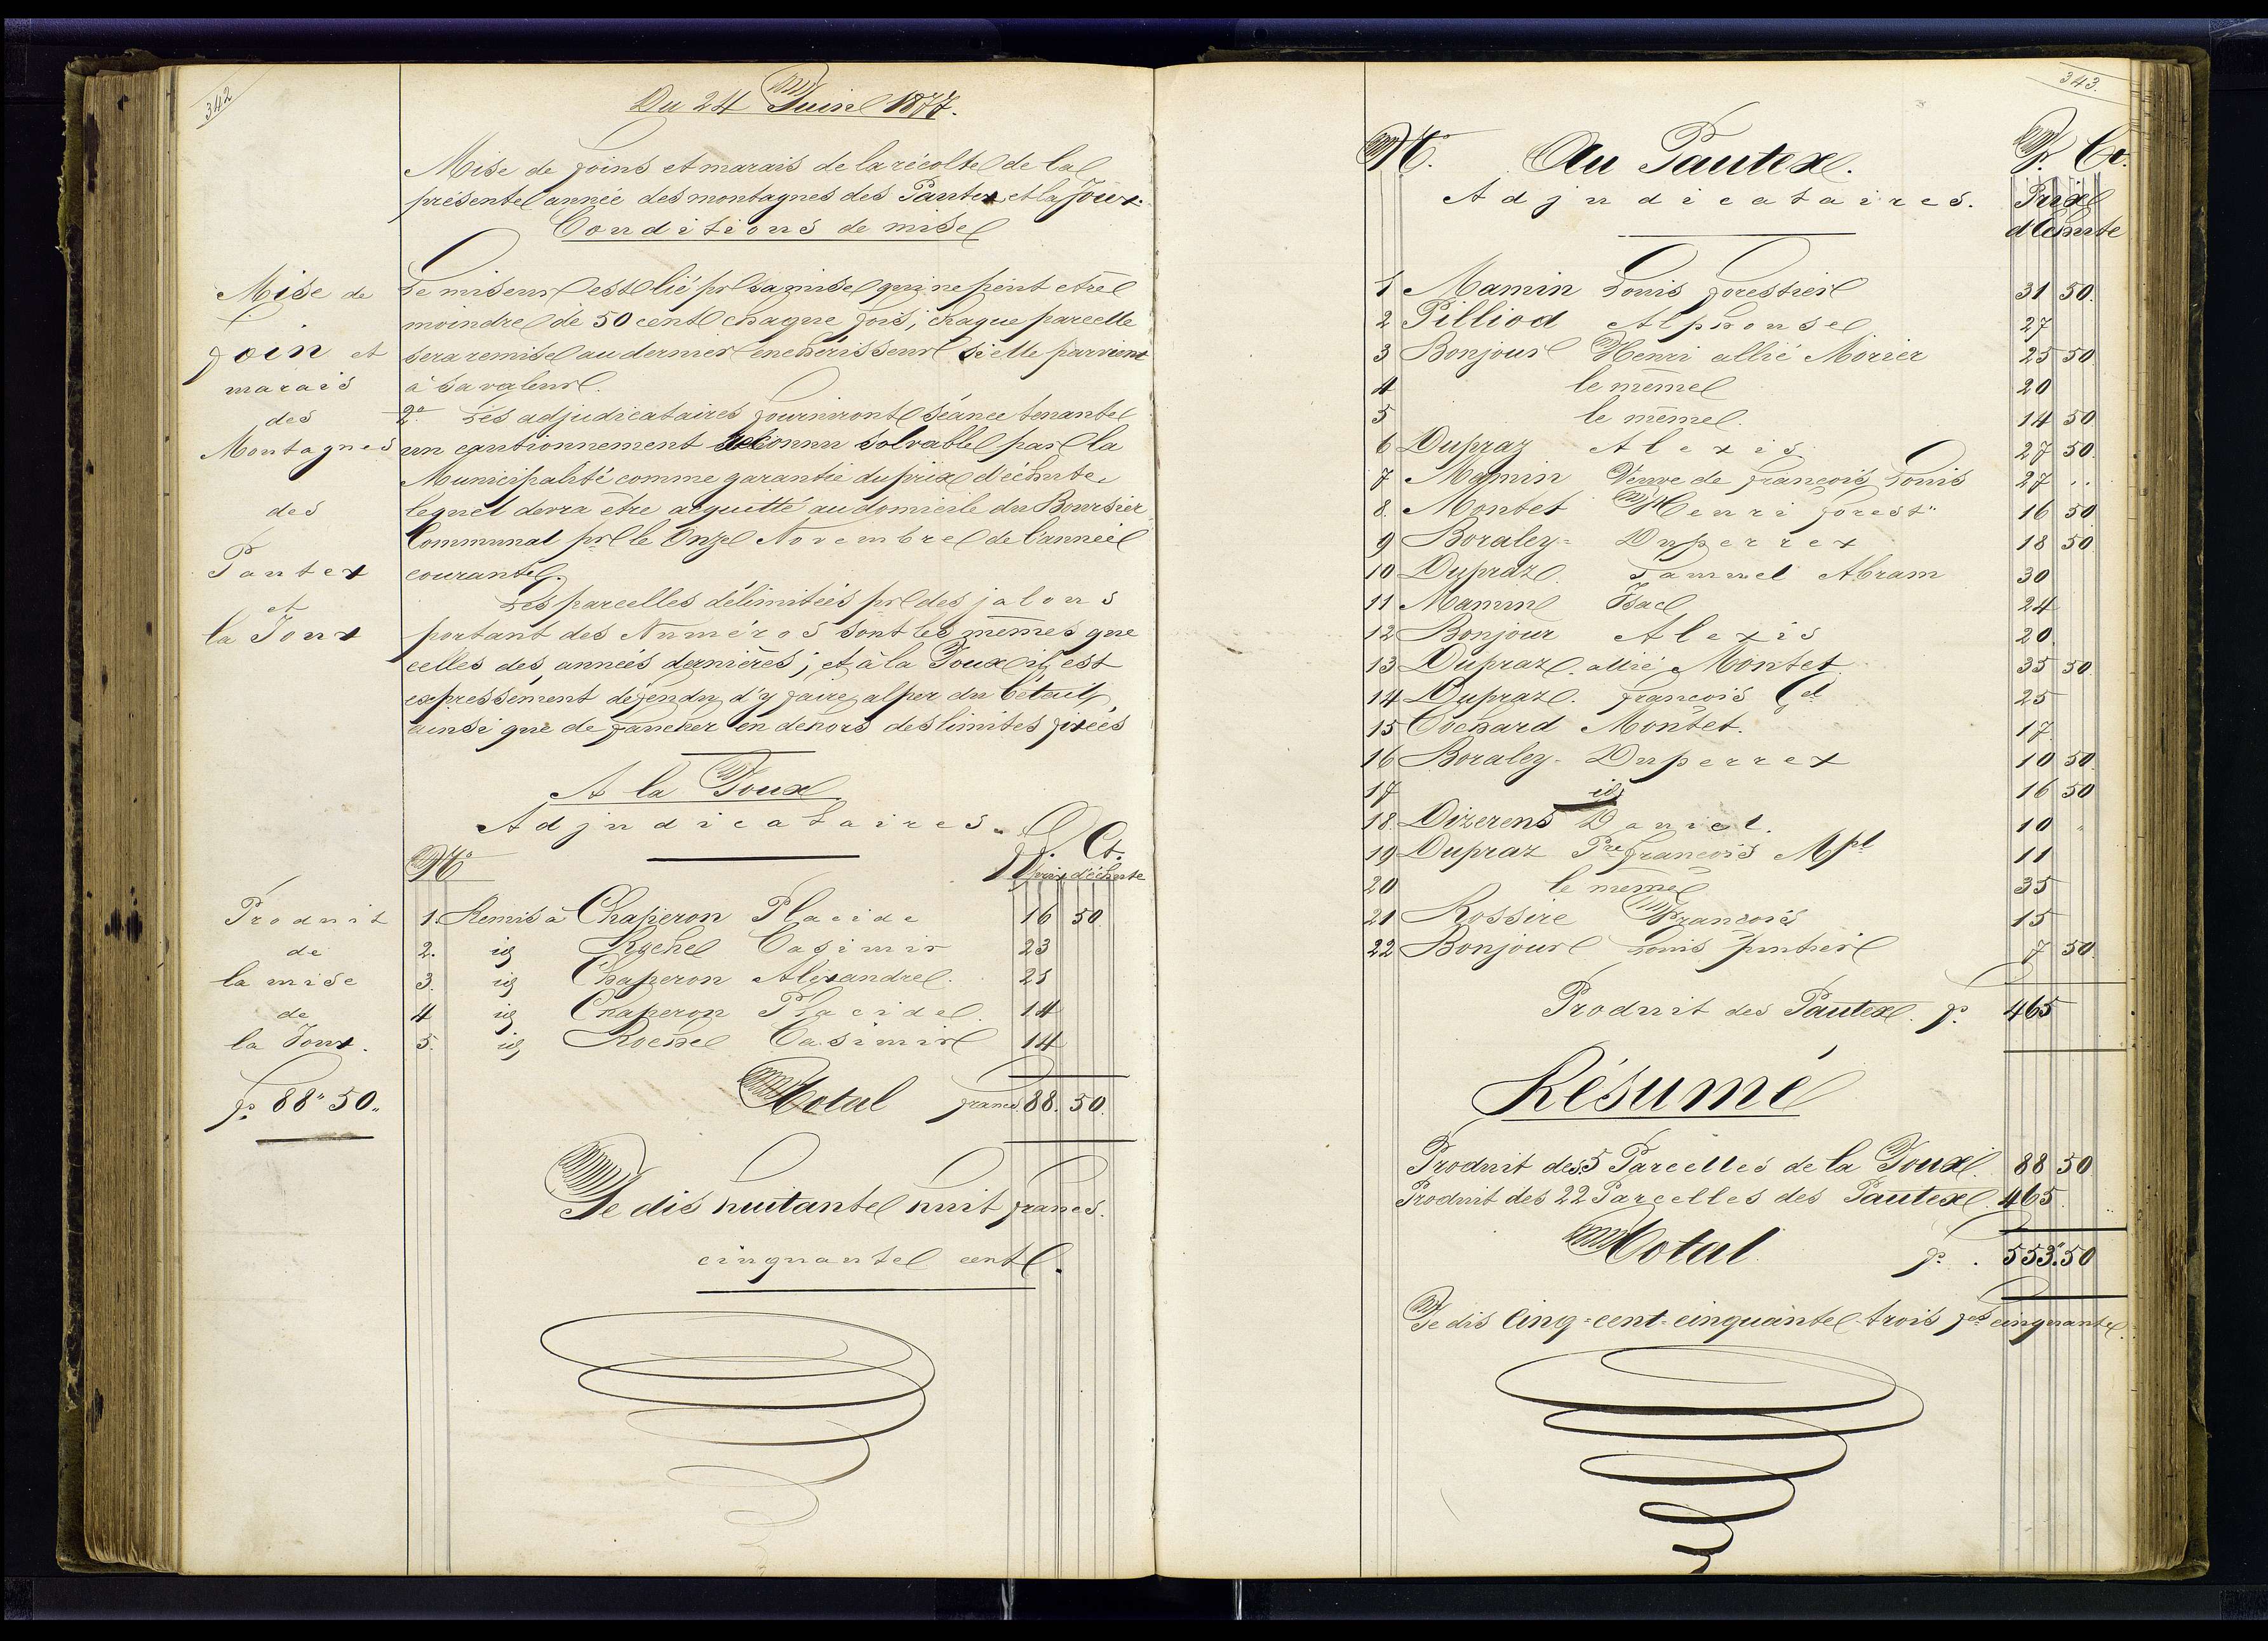 342
Du 24 Juin 1877.
Mise de foins et marais de la récolte de la
présente année des montagnes des Pautex et la Joux.
Conditions de mise
Mise de
foin et
marais
des
Montagnes
des
Pautex
et
la Joux
Le miseur est lié pr sa mise qui ne peut etre
moindre de 50 cent chaque fois; chaque parcelle
sera remise au dernier enchérisseur si elle parvient
à sa valeur.
2° Les adjudicataires fourniront séance tenante
un cautionnement reconnu solvable par la
Municipalité comme garantie du prix d'échute
lequel devra être acquitté au domicile du Boursier
Communal pr le Onze Novembre de l'année
courante.
Les parcelles délimitées pr des jalons
portant des Numéros sont les mêmes que
celles des années dernières; et à la Joux il est
expressément défendu d'y faire alper du bétail,
ainsi que de faucher en dehors des limites fixées
A la Joux
Adjudicataires.
N° fr. Ct.
prix d'échute
1. Remis à Chaperon Placide 16 50
2. id Rochel Casimir 23
3. id Chaperon Alexandre 21
4 id Chaperon Placide 14
5. id Rochel Casimir 14
Total francs 88. 50.
Produit
de
la mise
de
la Joux.
fr 88" 50"
Je dis huitante huit francs.
cinquante cent.
343.
N°. Au Pautex. Fr. Ct.
Adjudicataires. Prix
d'échute
1 Mamin Louis forestier 31 50.
2 Pilliod Alphonse 27
3 Bonjour Henri allié Morier 25 50.
4 le même 20
5 le même. 14 50
6 Dupraz Alexis 27 50.
7 Mamin Veuve de François Louis 27 "
8. Montet Henri forest" 16 50
9 Boraley= Duperrex 18 50
10 Dupraz. Sammuel Abram 30
11 Mamin Isac 24
12 Bonjour Alexis 20.
13 Dupraz. allié Montet 35 50.
14 Dupraz. françois Cel 25
15 Cochard Montet. 17.
16 Boraley- Duperrex 10 50.
17 id 16 50
18. Dizerens Daniel. 10 "
19 Dupraz Pre françois Mpl 11
20 le même 35
21 Rossire François 15
22 Bonjour Louis 7 50.
Produit des Pautex. fr. 465
Résumé
Produit des 5 Parcelles de la Joux. 88 50
Produit des 22 Parcelles des Pautex. 465.
Total fr. . 553"50
Je dis Cinq=cent-cinquante-trois fcs cinquante.